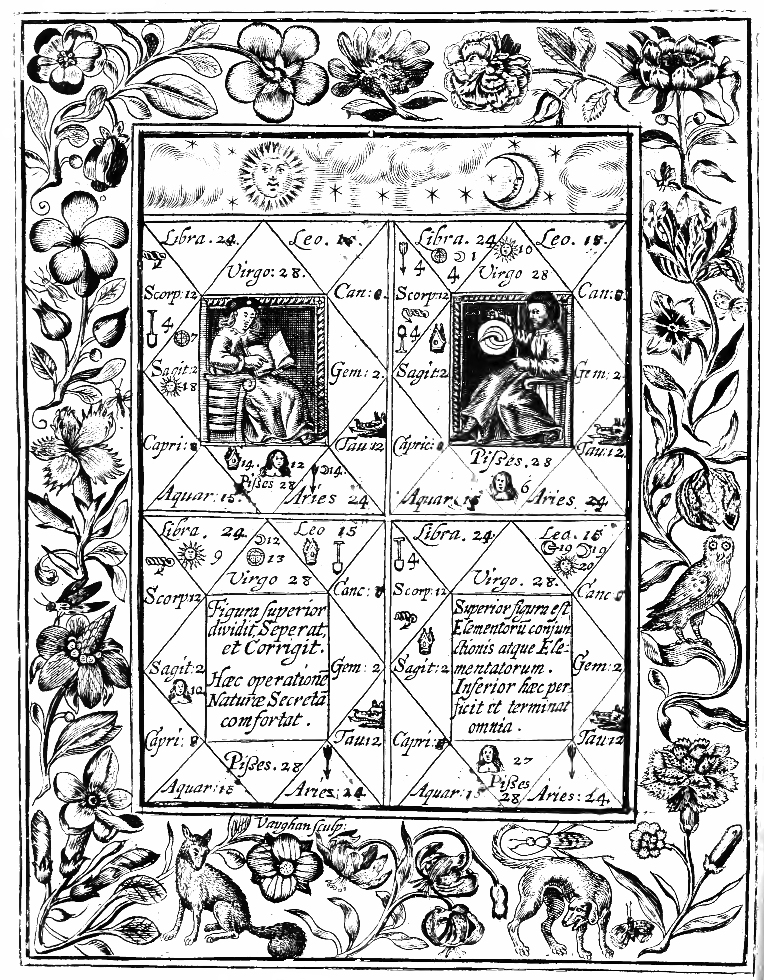 Libra. 24.
Leo. 15.
Virgo: 28.
Scorp: 12
Can:
4
7
Sagit: 2
18
Gem: 2.
Capri:
Tau: 12
14.
12
14.
Pisses 28
Aquar: 15.
Aries 24
Libra. 24
10
Leo. 18.
4
1
4
Virgo 28
Scorp: 12
Can:
4
Sagit: 2
Gem: 2.
Capric:
Tau: 12.
Pisses. 28
6
Aquar:
Aries. 24.
Libra. 24
12
Leo 15
9
13
Virgo 28
Scorp: 12
Canc:
Figura superior
dividit, Seperat,
et Corrigit.
Hæc operationē
Naturæ Secretā
comfortat.
Sagit: 2
12
Gem: 2.
Capri: 8
Tau 12
Pisses. 28
Aquar: 15
Aries. 24.
Libra. 24
Leo. 15
19
19
4
20
Virgo. 28.
Scorp: 12
Canc
Superior figura est
Elementorū conjun
ctionis atque Ele-
mentatorum.
Inferior hæc per-
ficit et terminat
omnia.
Sagit: 2
Gem: 2.
Capri:
Tau: 12
27
Pisses
28
Aquar:
Aries: 24.
Vaughan sculp: